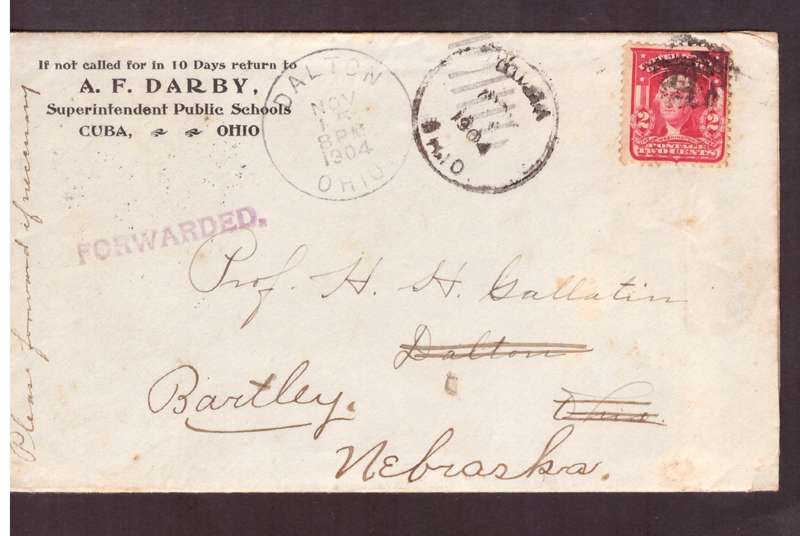 If not called for in 10 Days return to
A. F. DARBY,
Superintendent Public Schools
CUBA, OHIO
DALTON
NOV
8 PM
1904
OHIO
1904
OHIO
2 2
POSTAGE
TWO CENTS
FORWARDED.
Prof. H. H. Gallatin
Dalton
Ohio.
Bartley,
Nebraska.
Please forward if necessary